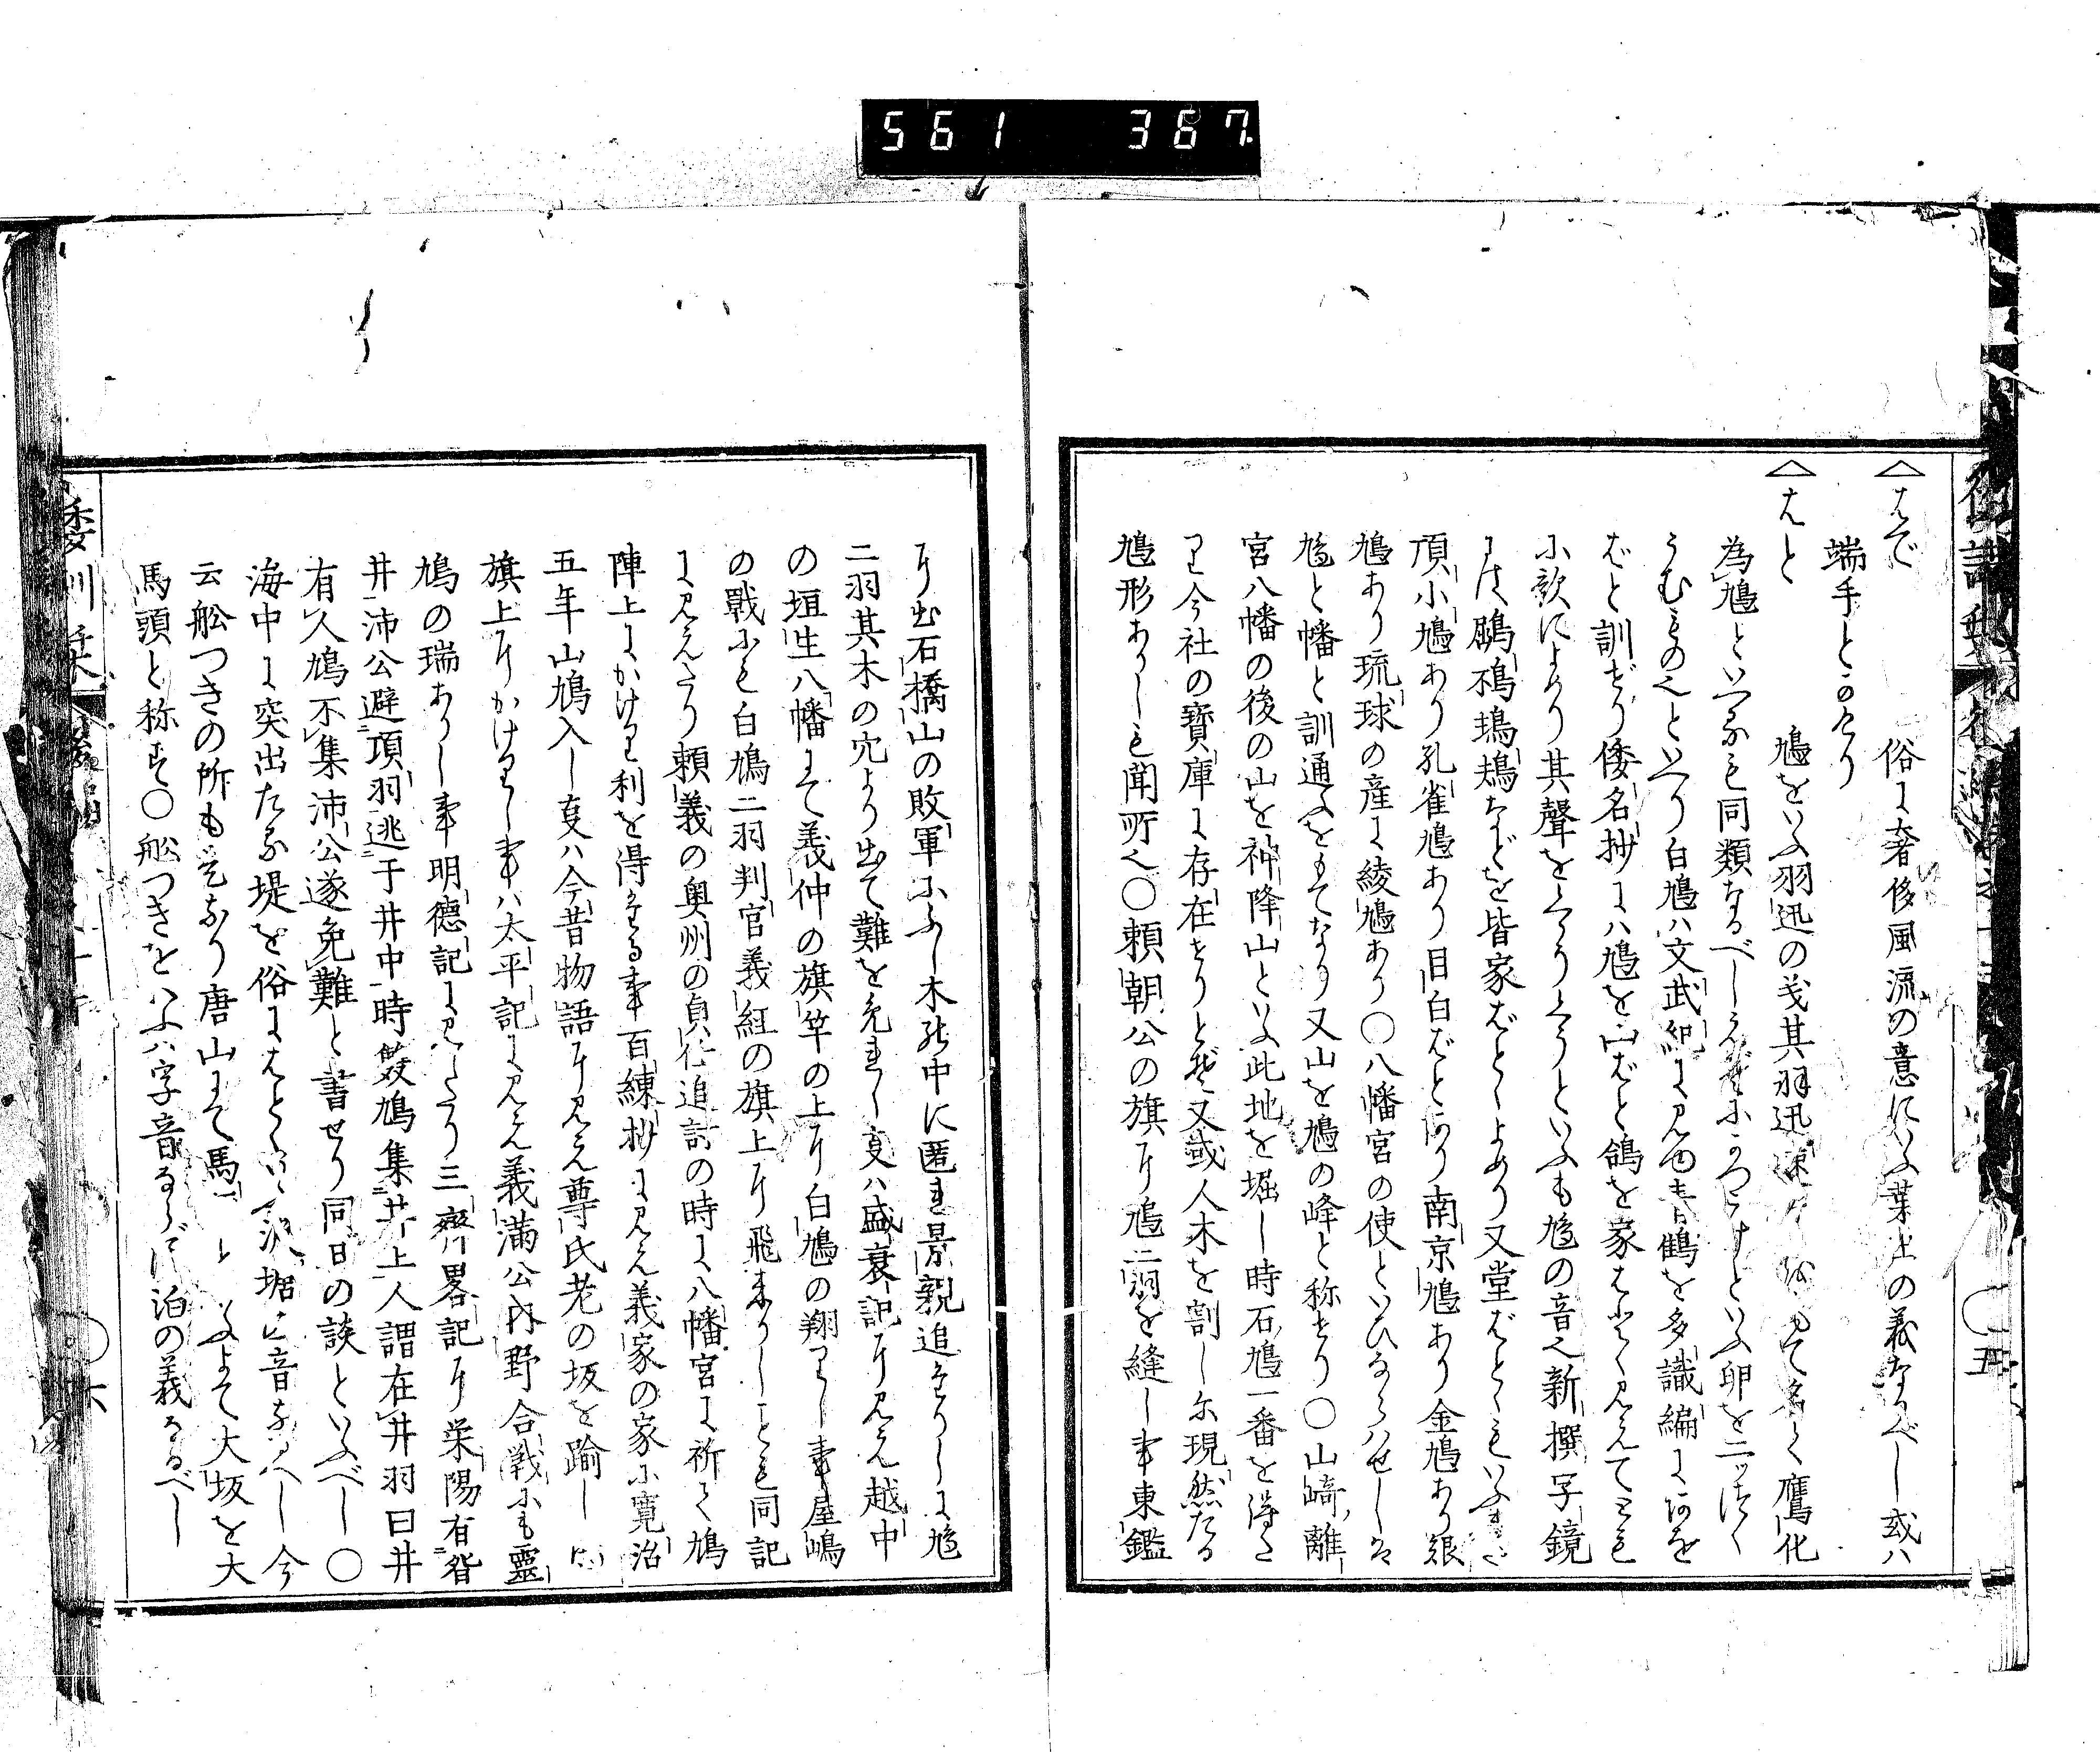 561 367
△はで 俗に奢侈風流の意にいふ葉出の義なるべし或ハ
端手とかけり
△はと 鳩をいふ羽迅の義其羽迅速 て名く鷹化
為鳩といへるも同類なるべし といふ卵を二ッづゝ
うむものといへり白鳩ハ文武紀に見ゆ青鶴を多識編にあを
ばと訓ぜり倭名抄にハ鳩を山ばと鴿を家ばとゝ見えてとも
に歌によめり其聲をとうとうといふも鳩の音也新撰字鏡
に 鶌鳩などを皆家ばとゝよめり又堂ばとゝもいふ
頂小鳩あり孔雀鳩あり目白ばとあり南京鳩あり金鳩あり銀
鳩あり琉球の産に綾鳩あり〇八幡宮の使といひならハせしは
鳩と幡と訓通ふをもてなり又山を鳩の峰と称せり〇山崎離
宮八幡の後の山を神降山といふ此地を堀し時石鳩一番を得た
り今社の寶庫に存在せりとぞ又或人木を割しに現然たる
鳩形ありしも聞所也〇頼朝公の旗に鳩二羽を縫し事東鑑
に出石橋山の敗軍にふし木の中に匿れ景親追至りしに鳩
二羽其木の穴より出て難を免れし事ハ盛衰記に見え越中
の垣生八幡にて義仲の旗竿の上に白鳩の翔りし事屋嶋
の戰にも白鳩二羽判官義経の旗上に飛来りしことも同記
に見えたり頼義の奥州の貞任追討の時に八幡宮に祈て鳩
陣上にかけり利を得たる事百練抄に見え義家の家に寛治
五年山鳩入し事ハ今昔物語に見え尊氏老の坂を踰し
旗上にかけりし事ハ太平記に見え義満公内野合戦にも靈
鳩の瑞ありし事明徳記に見えたり三齊畧記に栄陽有眢
井沛公避項羽逃于井中時雙鳩集井上人謂在井羽曰井
有人鳩不集沛公遂免難と書せり同日の談といふべし〇
海中に突出たる堤を俗にはとゝいふ 音なるべし今
云舩つきの所も是なり唐山にて馬 といふよて大坂を大
馬頭と称す〇舩つきをいふハ字音ならず泊の義なるべし